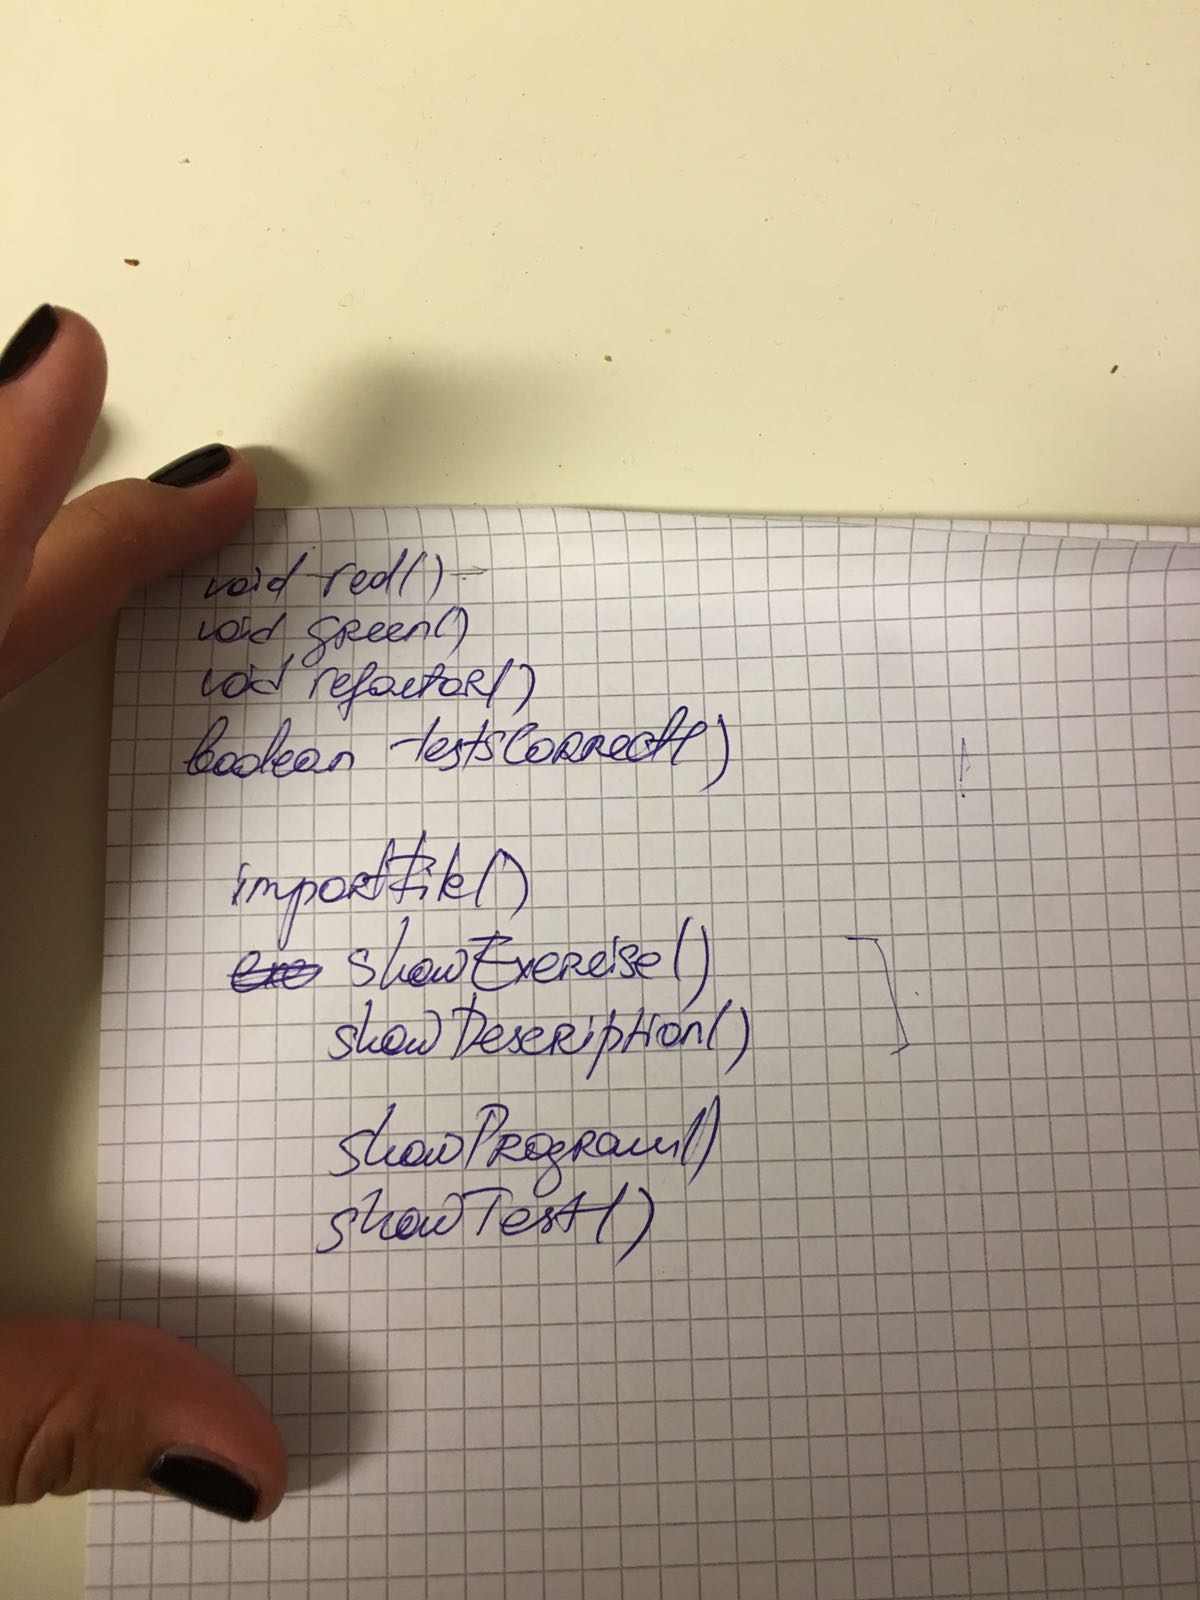 void red() →
void green()
void refactor()
boolean testsCorrect()
importFile()
showExercise()
showDescription()
showProgram()
showTest()